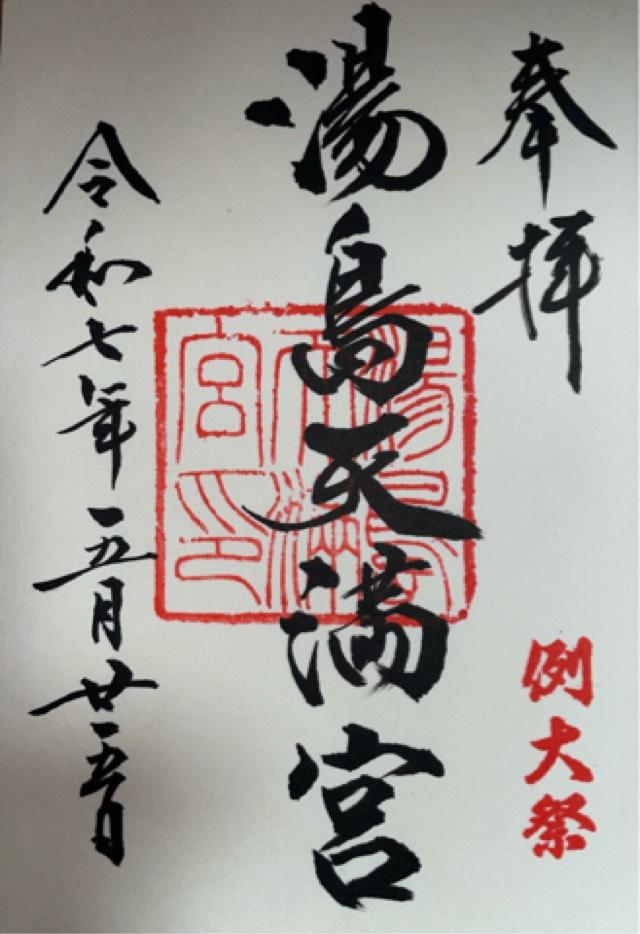 奉拝
例大祭
湯島天満宮
湯島天満宮印
令和七年五月廿五日